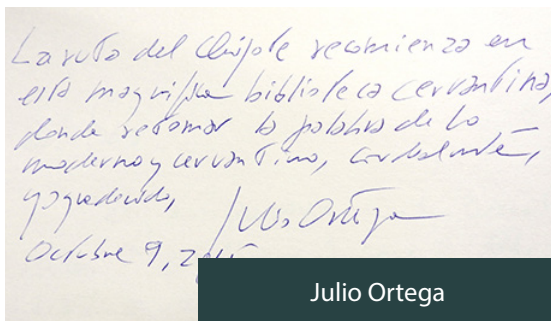 La ruta del Quijote recomienza en
esta magnífica biblioteca cervantina,
donde retomar la palabra de lo
moderno y cervantino, cordialmente,
y agradecido,
Julio Ortega
Octubre 9,
Julio Ortega